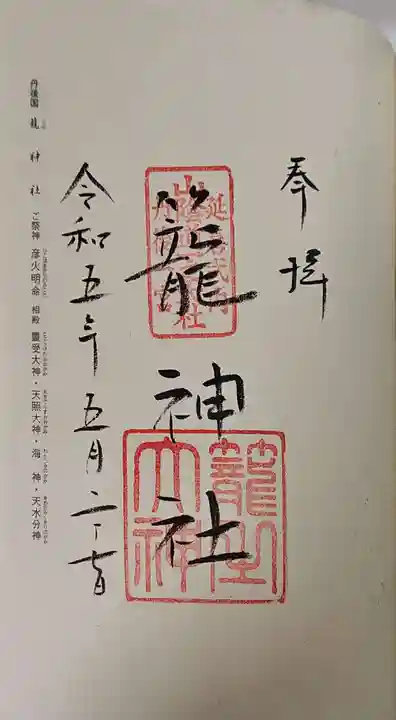 奉拝
延喜式内
籠神社
籠之大神
令和五年五月二十
丹後国 籠神社 ご祭神 彦火明命 相殿 豐受大神・天照大神・海神・天水分神